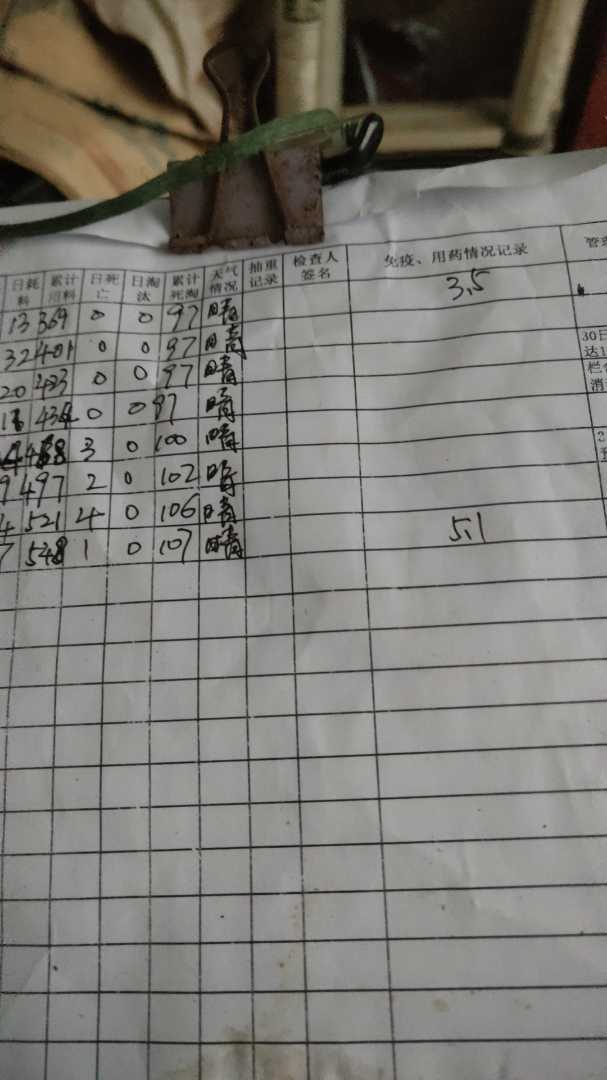 日耗料 累计用料 日死亡 日淘汰 累计死淘 天气情况 抽重记录 检查人签名 免疫、用药情况记录
13 369 0 0 97 晴 3.5
32 401 0 0 97 晴
20 423 0 0 97 晴
434 0 0 97 晴
3 0 100 晴
9 497 2 0 102 晴
4 521 4 0 106 晴
7 548 1 0 107 晴 5.1
30日
达1